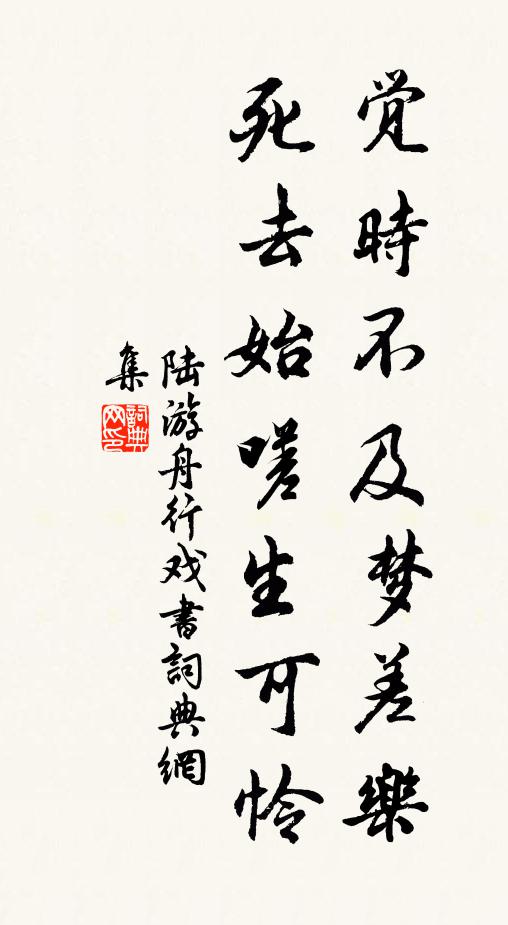 觉時不及梦差樂
死去始嗟生可怜
陆游舟行戏書詞典網
集
詞典网印